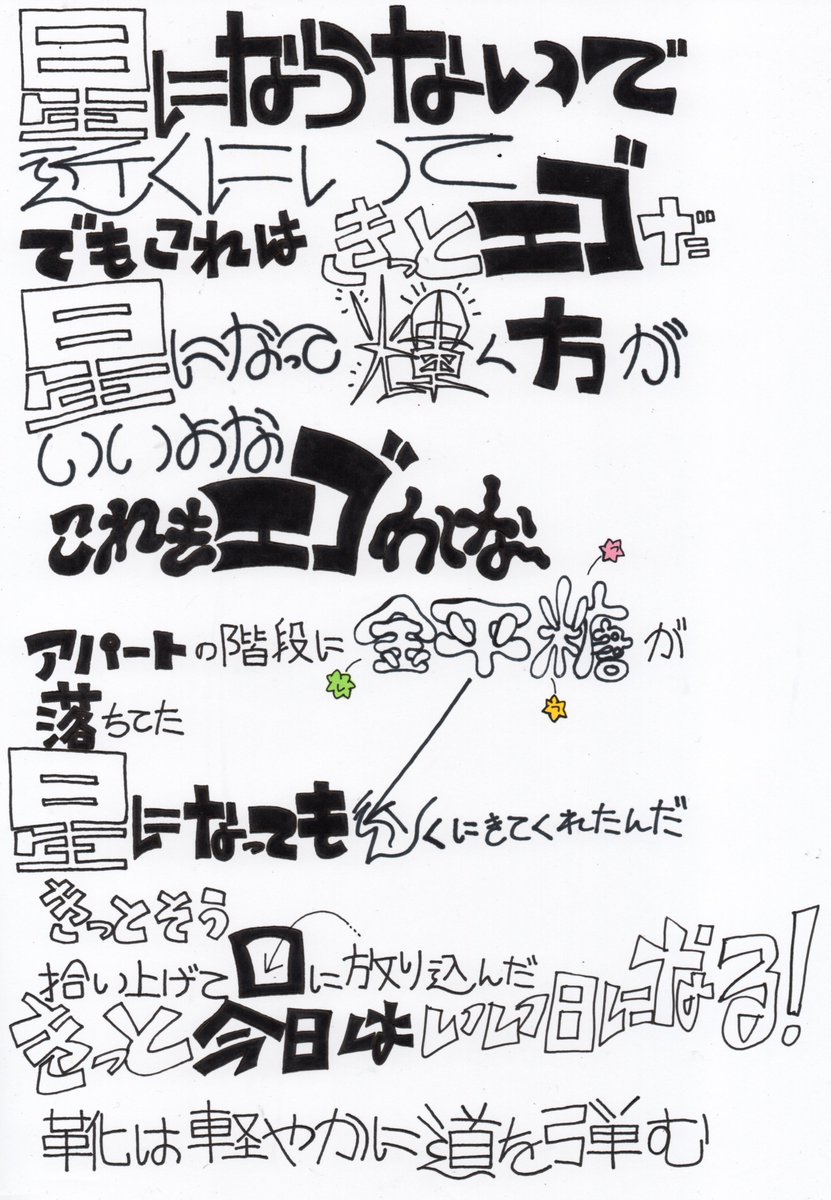 星にならないで
近くにいて
でもこれは きっとエゴだ
星になって輝く方が
いいよな
これもエゴかしな〜
アパートの階段に金平糖が
落ちてた
星になっても近くにきてくれたんだ
きっとそう
拾い上げて口に放り込んだ
きっと今日はいい日になる!
靴は軽やかに道を弾む